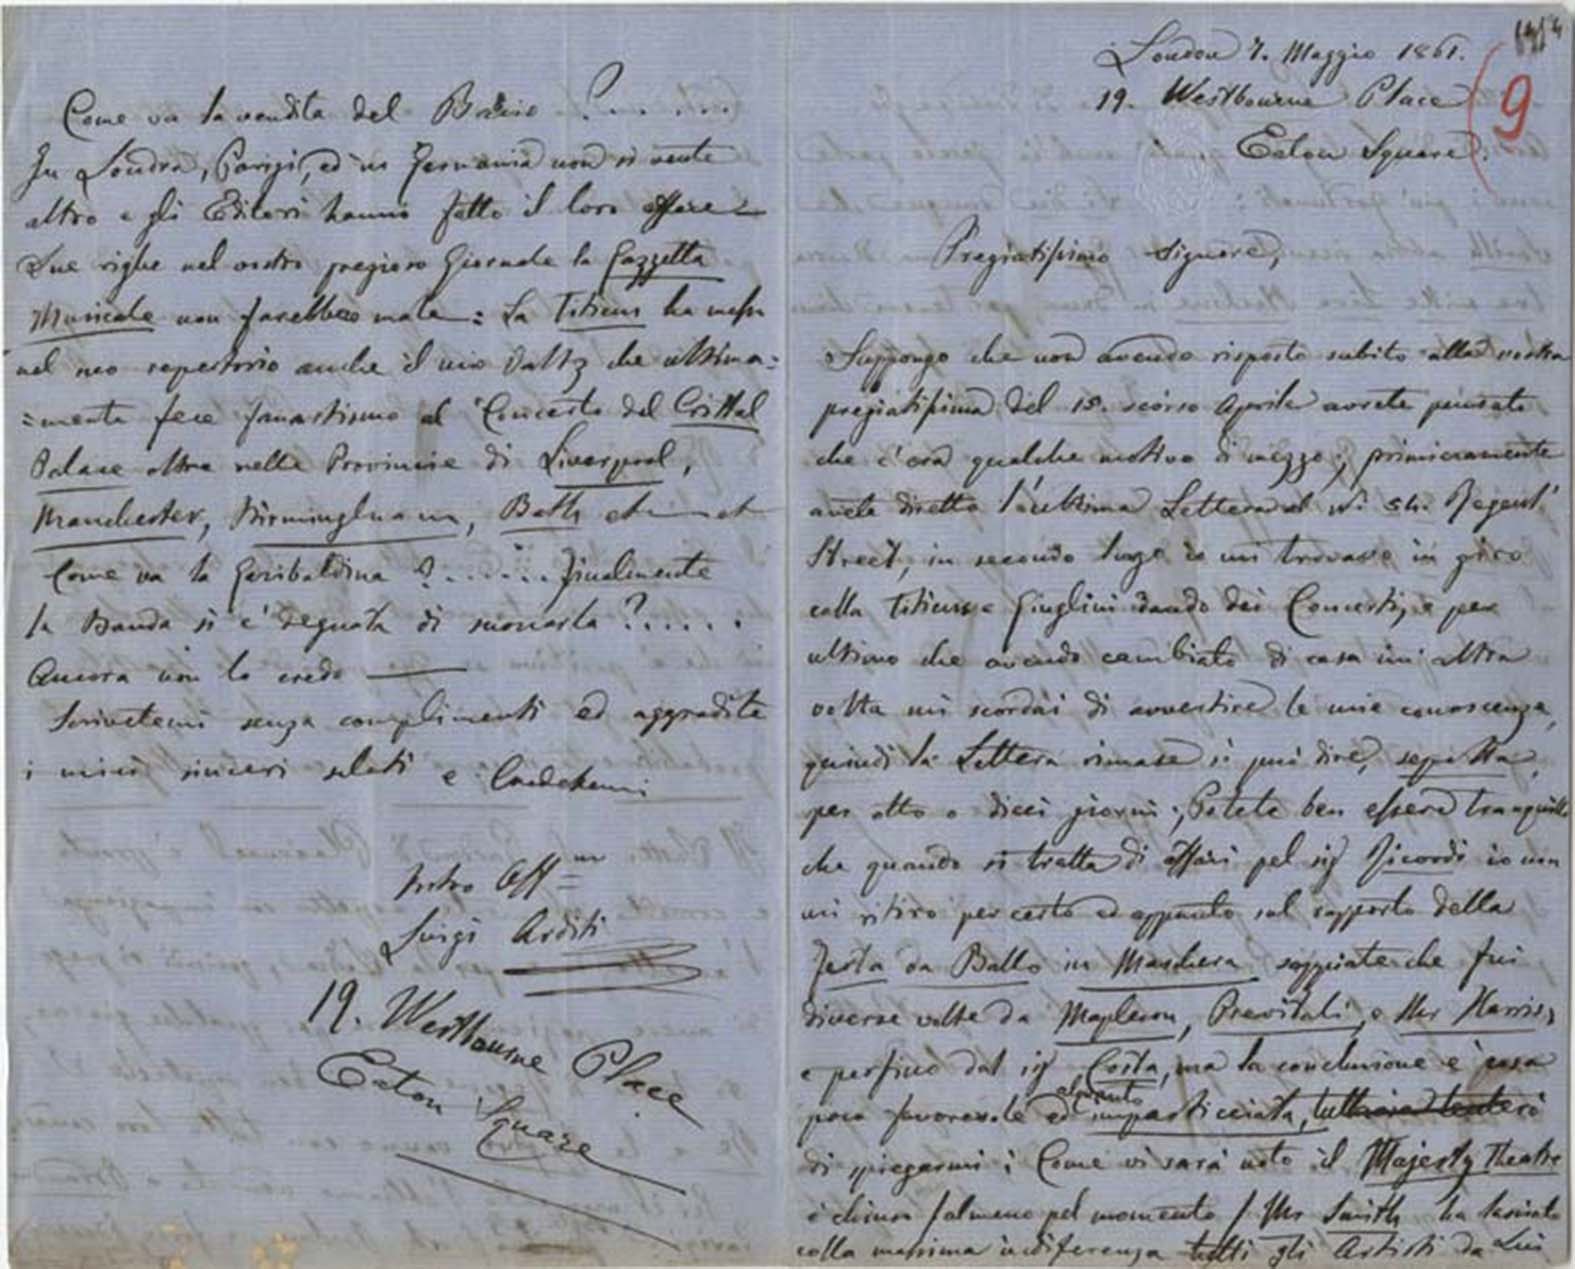 London 7. Maggio 1861.
19. Westbourne Place
Eaton Square.
9
Pregiatissimo Signore,
Suppongo che non avendo risposto subito alla vostra
pregiatissima del 15. scorso Aprile avrete pensato
che c'era qualche motivo di mezzo; primieramente
avete diretto l'ultima Lettera al Nº 54. Regent
Street, in secondo luogo io mi trovavo in giro
colla Titiens e Giuglini dando dei Concerti, e per
ultimo che avendo cambiato di casa un'altra
volta mi scordai di avvertire le mie conoscenze,
quindi la Lettera rimase si può dire, sepolta,
per otto o dieci giorni; Potete ben essere tranquillo
che quando si tratta di affari pel sigr Ricordi io non
mi ritiro per certo ed appunto sul rapporto della
Festa da Ballo in Maschera sappiate che fui
diverse volte da Mapleson, Previtali, e Mr Harris,
e perfino dal sigr Costa, ma la conclusione è cosa
poco favorevole ed alquanto impasticciata,
di spiegarmi; Come vi sarà noto il Majesty Theatre
è chiuso almeno pel momento / Mr Smith ha lasciato
colla massima indiferenza tutti gli Artisti da Lui
Come va la vendita del Bacio ?......
In Londra, Parigi, ed in Germania non si vende
altro e gli Editori hanno fatto il loro affare
Due righe nel vostro pregioso Giornale la Gazzetta
Musicale non farebbero male: La Titiens ha messo
nel suo repertorio anche il mio Valtz che ultima=
=mente fece fanatismo al Concerto del Cristal
Palace oltre nelle Provincie di Liverpool,
Manchester, Birmingham, Bath
Come va la Garibaldina ?...... Finalmente
la Banda si è degnata di suonarla ?......
Ancora non lo credo
Scrivetemi senza complimenti ed aggradite
i miei sinceri saluti e Credetemi
Vostro Affmo
Luigi Arditi
19. Westbourne Place
Eaton Square